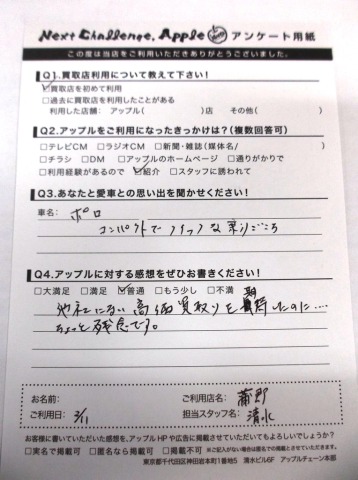 Next Challenge, Apple アンケート用紙
この度は当店をご利用いただきありがとうございました。
Q1.買取店利用について教えて下さい!
☑買取店を初めて利用
□過去に買取店を利用したことがある
利用した店舗: アップル( )店 その他( )
Q2.アップルをご利用になったきっかけは?(複数回答可)
□テレビCM □ラジオCM □新聞・雑誌(媒体名/ )
□チラシ □DM □アップルのホームページ □通りがかりで
□利用経験があるので ☑紹介 □スタッフに誘われて
Q3.あなたと愛車との思い出を聞かせください!
車名: ポロ
コンパクトで クイックな 乗りごこち
Q4.アップルに対する感想をぜひお書きください!
□大満足 □満足 ☑普通 □もう少し □不満
他社にない高価買取りを期待したのに……
ちょっと残念です。
お名前: ご利用店名: 蒲郡
ご利用日: 3/11 担当スタッフ名: 清水
お客様に書いていただいた感想を、アップルHPや広告に掲載させていただいてもよろしいでしょうか?
□実名で掲載可 □匿名なら掲載可 □掲載不可 ※ご記入がない場合は匿名での掲載とさせていただきます。
東京都千代田区神田岩本町1番地5 清水ビル6F アップルチェーン本部